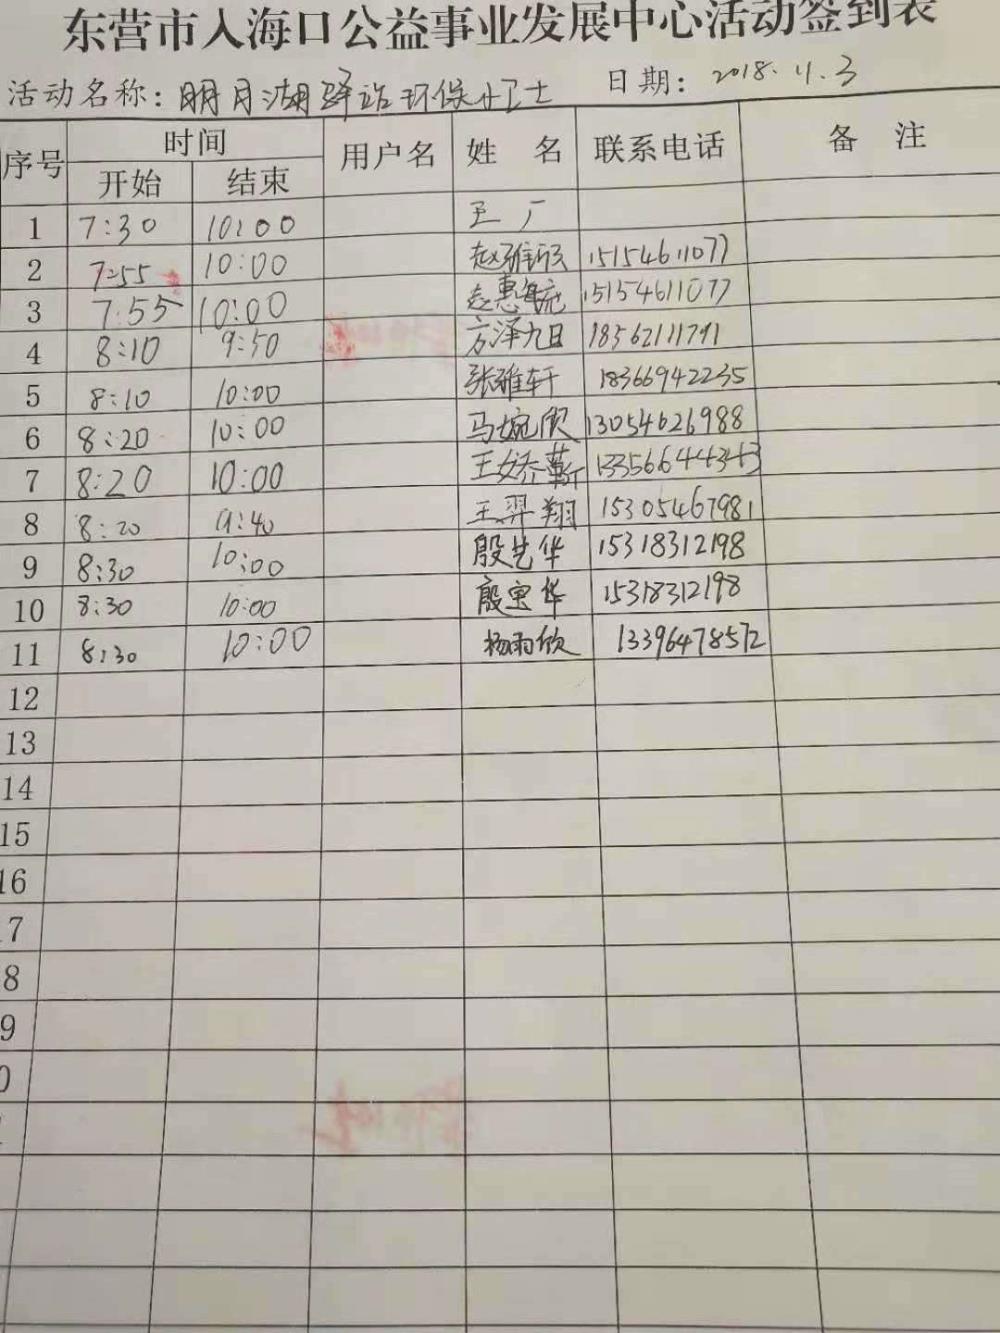 东营市入海口公益事业发展中心活动签到表
活动名称：明月湖驿站环保卫士 日期：2018.11.3
序号 时间 用户名 姓 名 联系电话 备 注
开始 结束
1 7:30 10:00 王 广
2 7:55 10:00 赵雅 15154611077
3 7:55 10:00 赵惠 15154611077
4 8:10 9:50 方泽九日 18562111791
5 8:10 10:00 张雅轩 18366942235
6 8:20 10:00 马婉欣 13054626988
7 8:20 10:00 王娇蕲 13356644343
8 8:20 9:40 王羿翔 15305467981
9 8:30 10:00 殷艺华 15318312198
10 8:30 10:00 殷宝华 15318312198
11 8:30 10:00 杨雨欣 13396478572
12
13
14
15
16
7
8
9
0